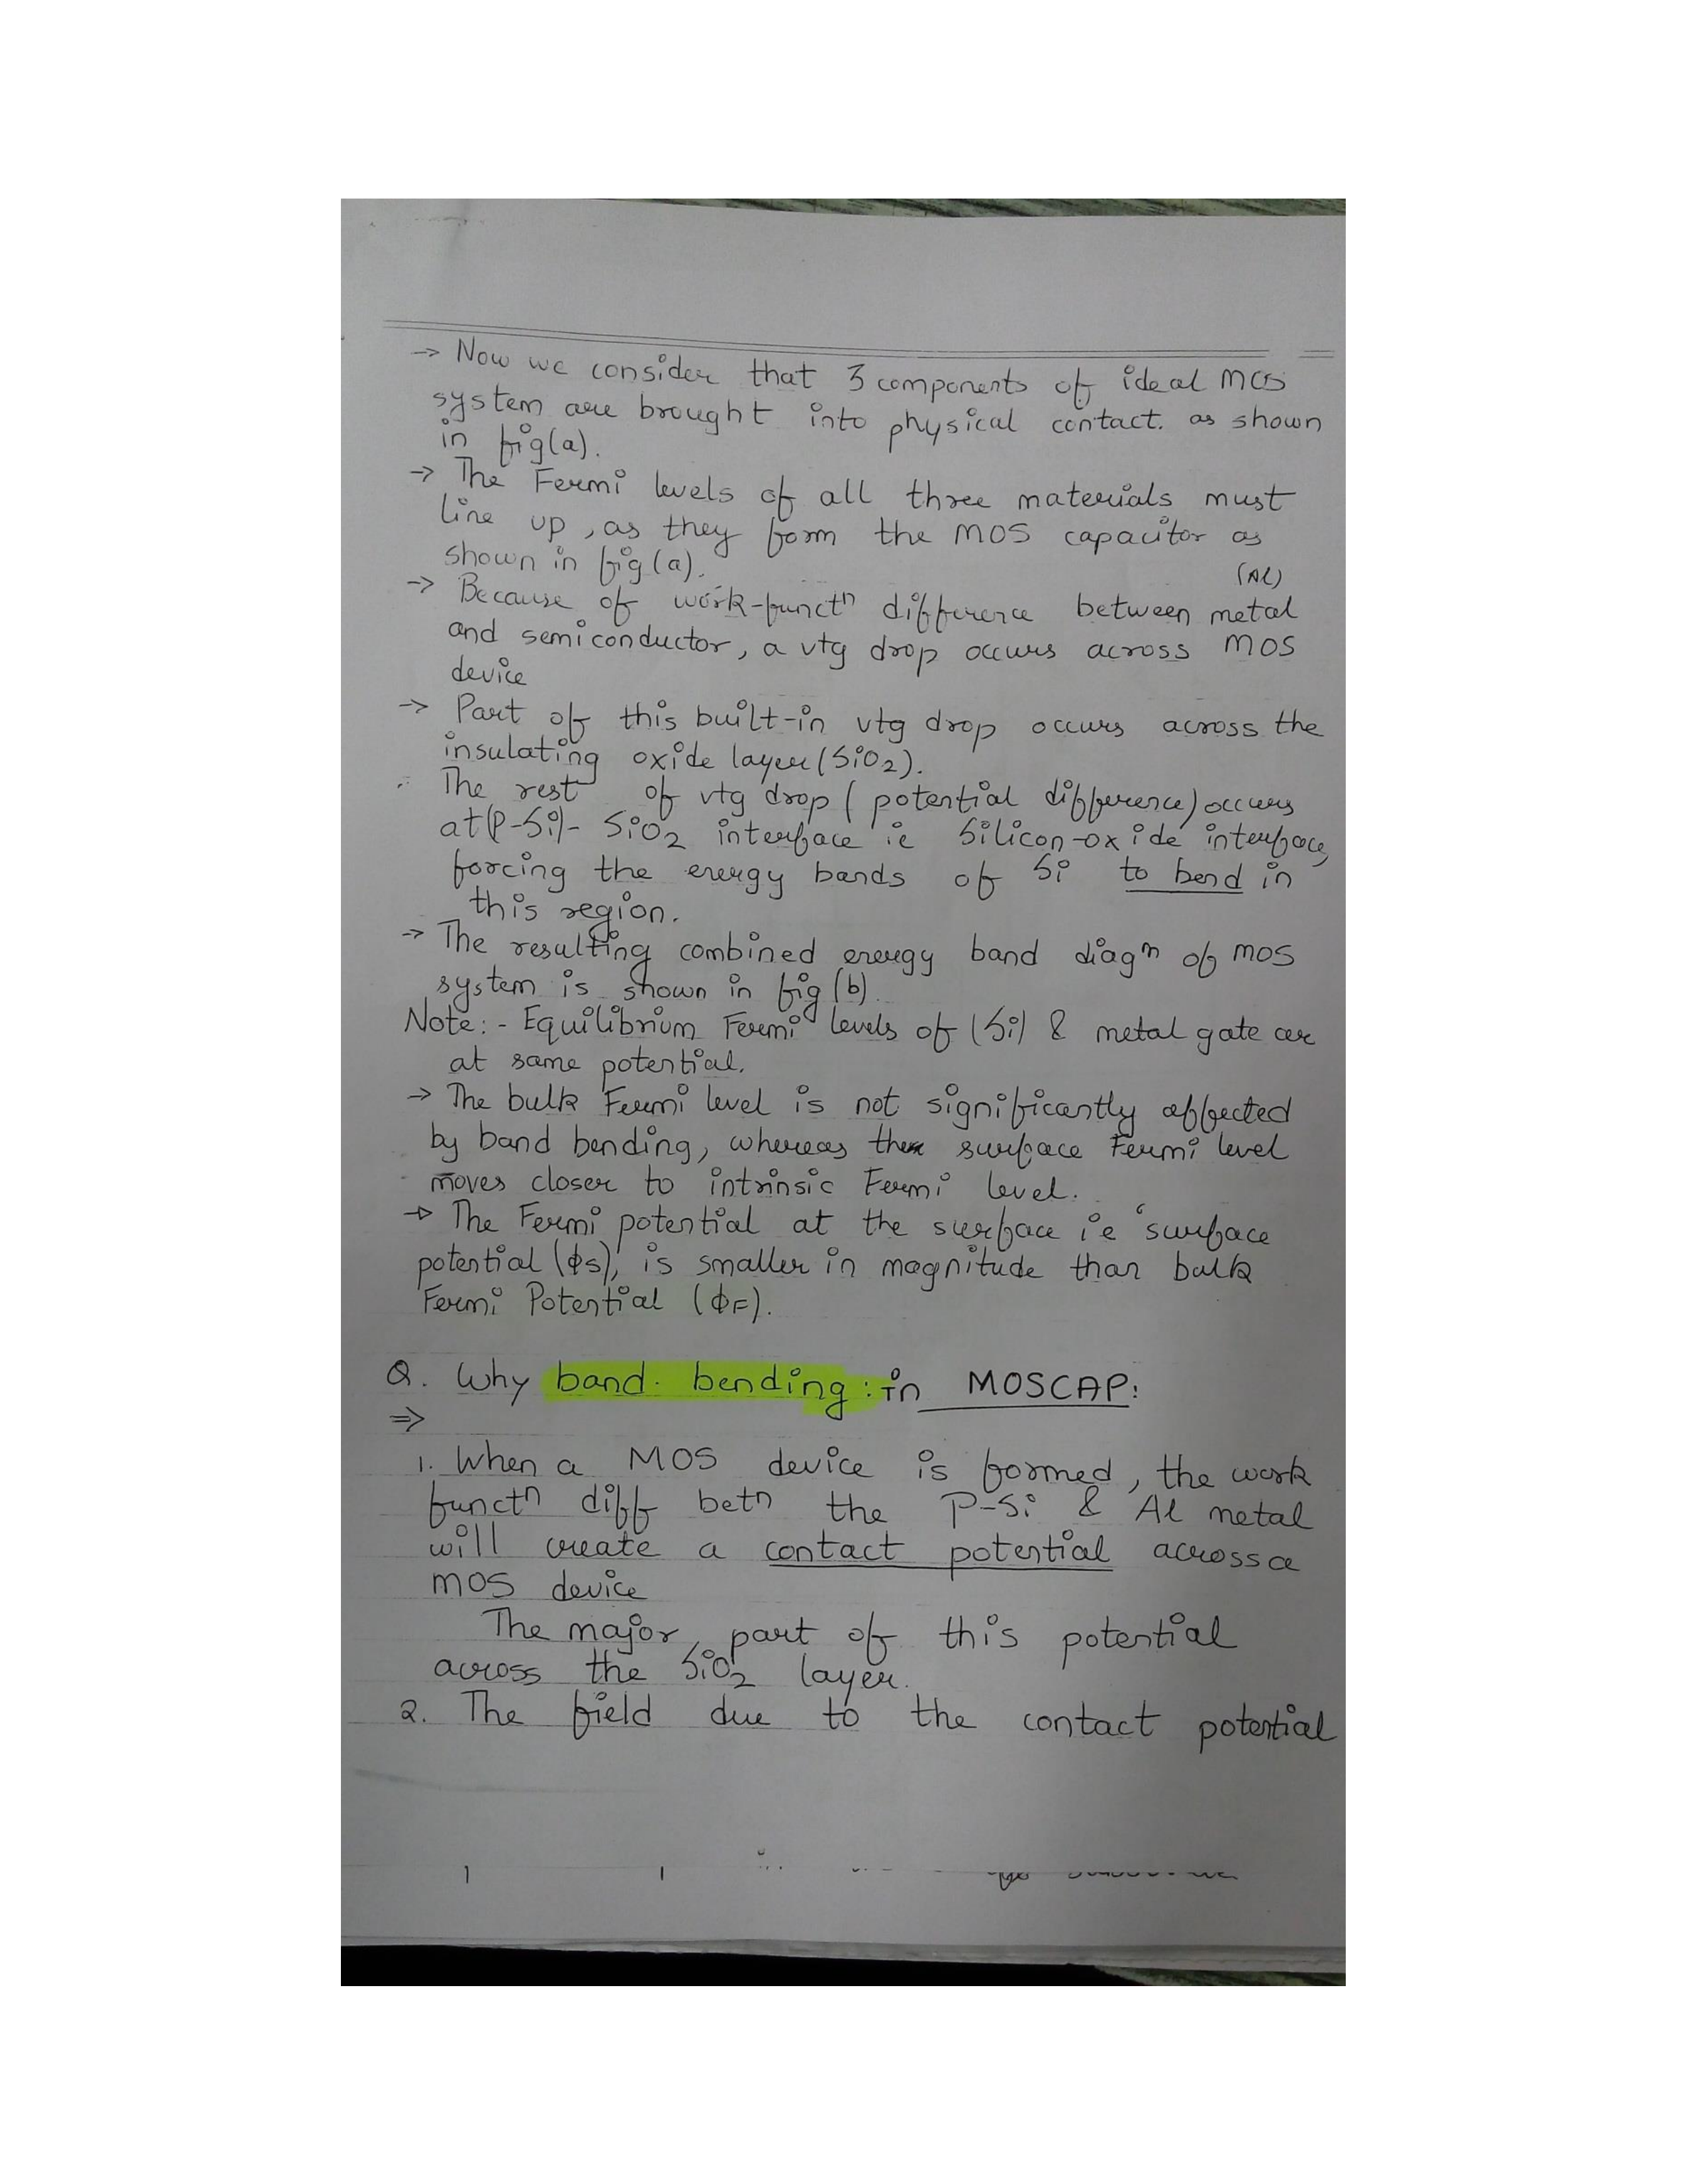 → Now we consider that 3 components of ideal MOS
system are brought into physical contact. as shown
in fig(a).
→ The Fermi levels of all three materials must
line up, as they form the MOS capacitor as
shown in fig(a).
(Al)
→ Because of work-functⁿ difference between metal
and semiconductor, a vtg drop occurs across MOS
device
→ Part of this built-in vtg drop occurs across the
insulating oxide layer (SiO₂).
The rest of vtg drop (potential difference) occurs
at (P-Si)- SiO₂ interface ie Silicon-oxide interface,
forcing the energy bands of Si to bend in
this region.
→ The resulting combined energy band diagᵐ of MOS
system is shown in fig (b).
Note:- Equilibrium Fermi levels of (Si) & metal gate are
at same potential.
→ The bulk Fermi level is not significantly affected
by band bending, whereas the surface Fermi level
moves closer to intrinsic Fermi level.
→ The Fermi potential at the surface ie 'surface
potential (ɸs)', is smaller in magnitude than bulk
Fermi Potential (ɸF).
Q. Why band bending: in MOSCAP:
⇒
1. When a MOS device is formed, the work
functⁿ diff betⁿ the P-Si & Al metal
will create a contact potential across a
MOS device
The major part of this potential
across the SiO₂ layer.
2. The field due to the contact potential